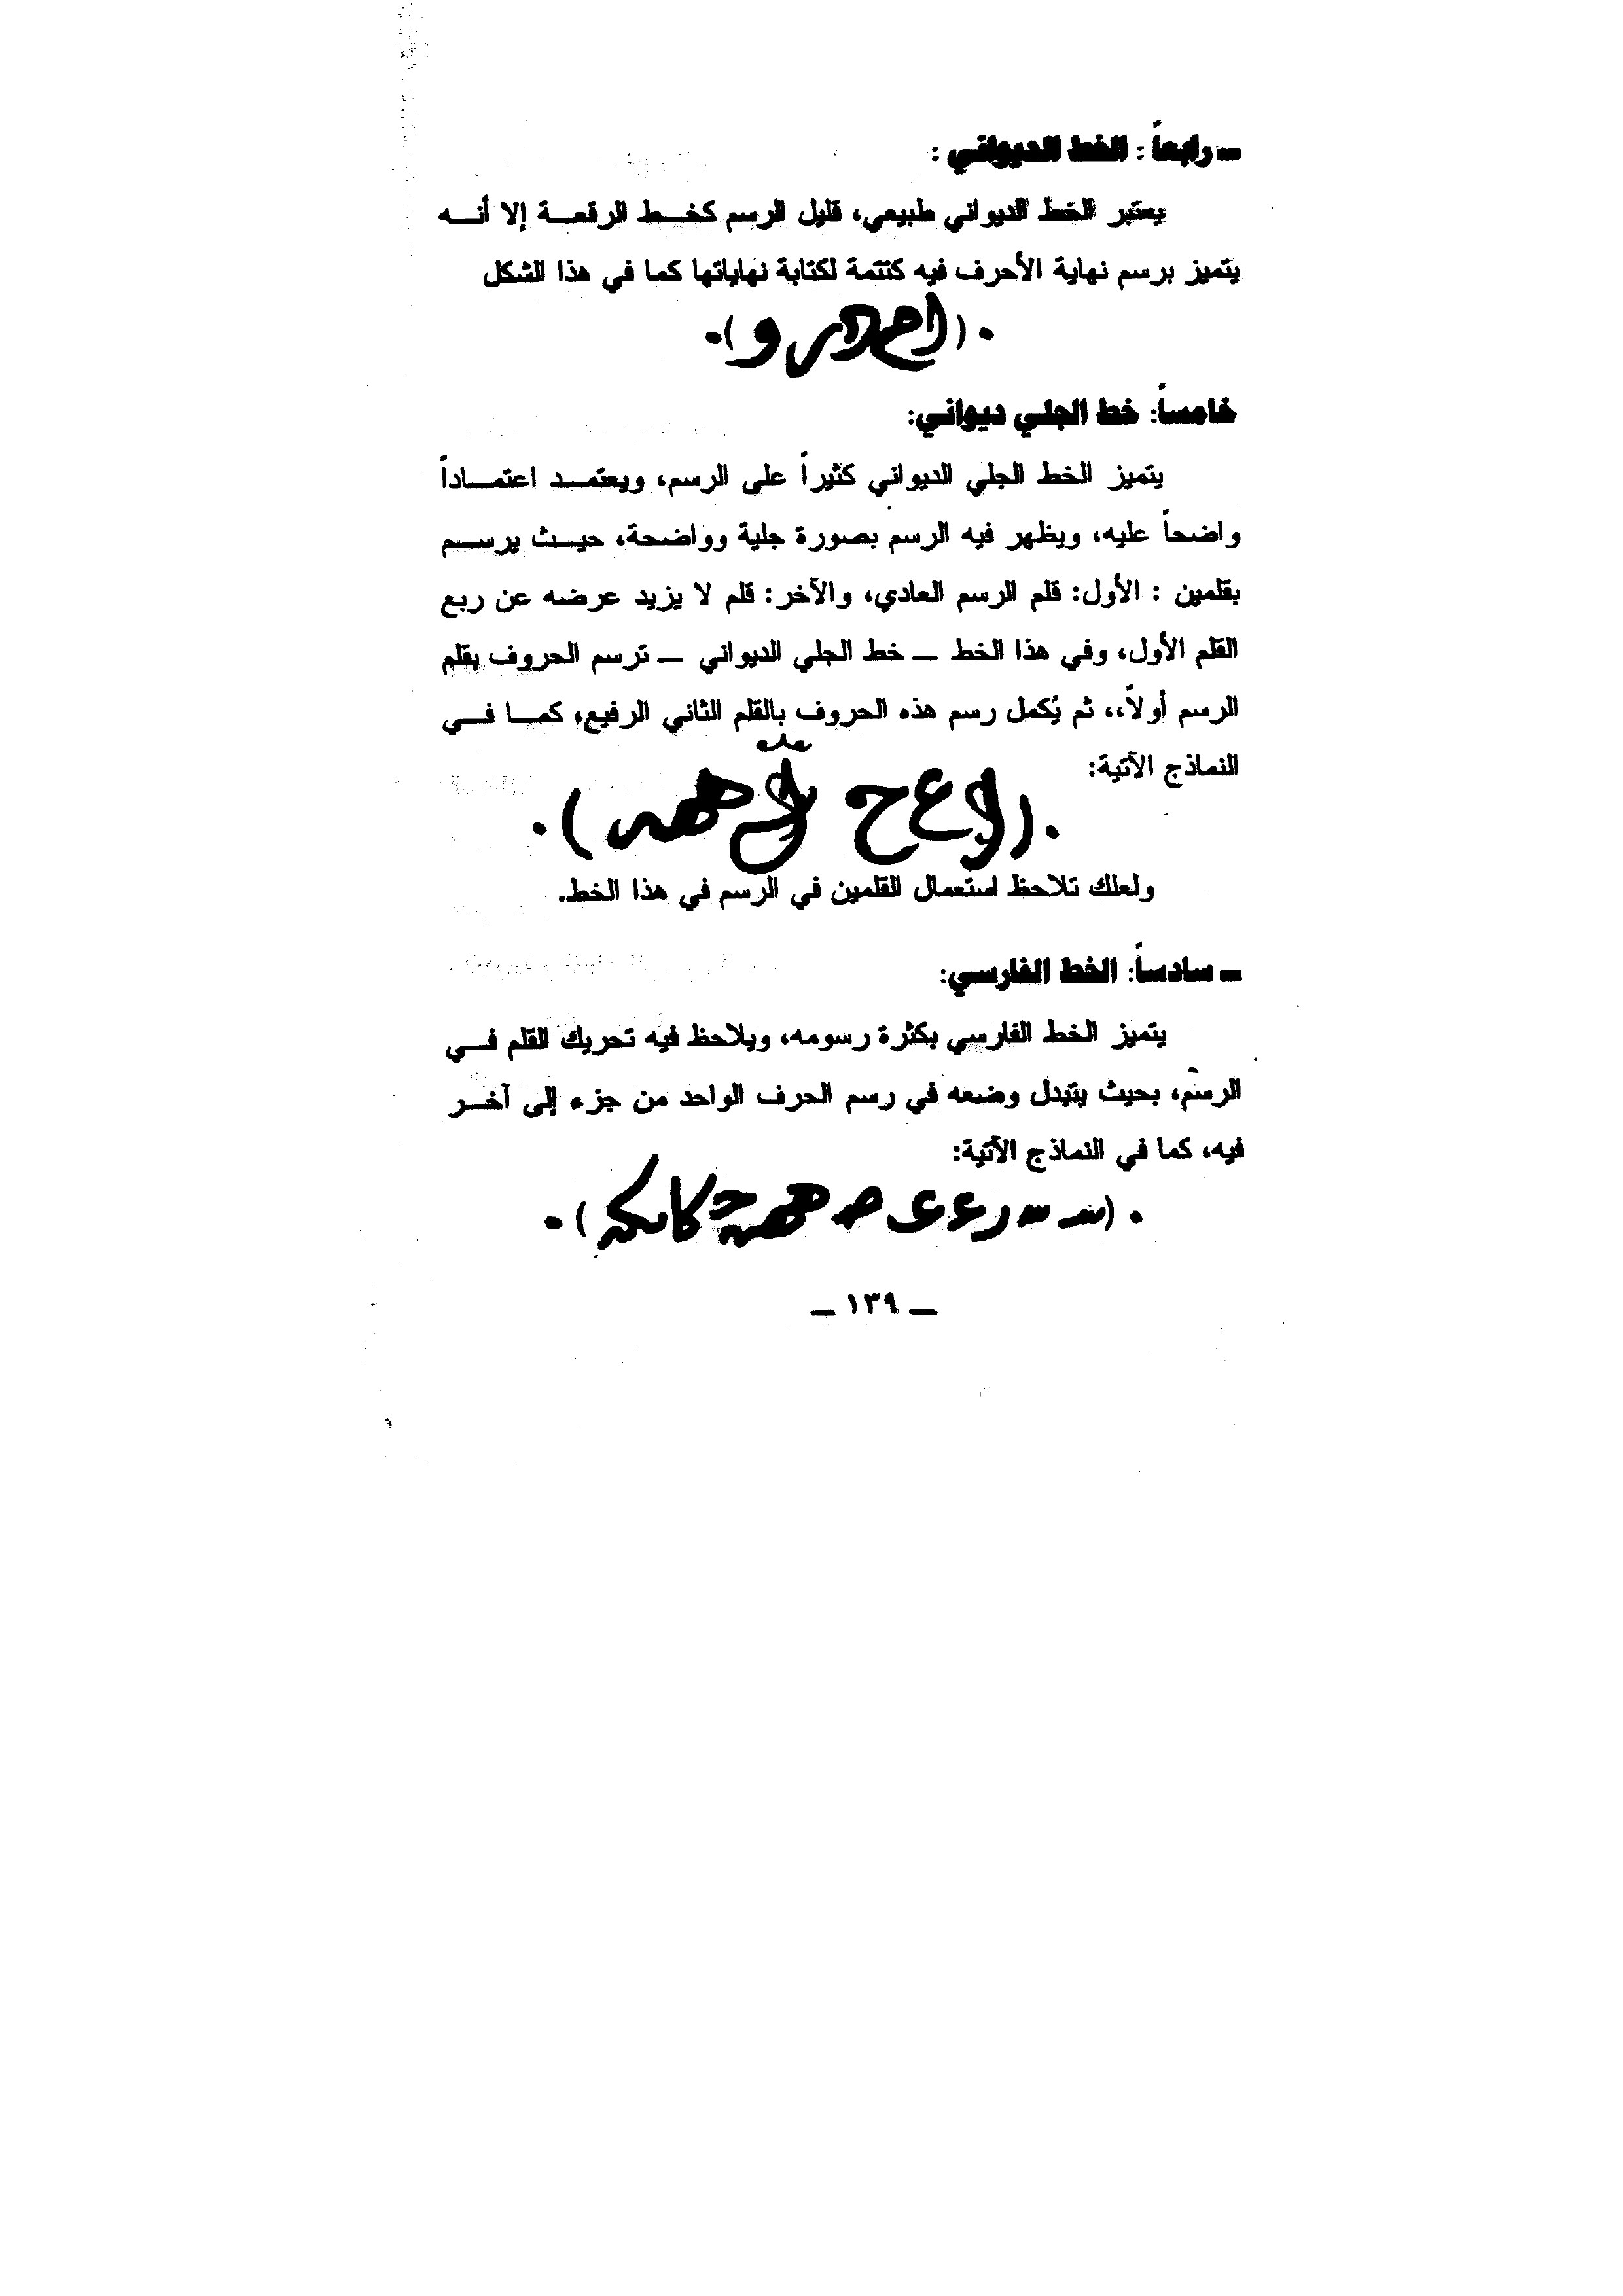 ــ رابعاً : الخط الديواني :
يعتبر الخط الديواني طبيعي، قليل الرسم كخـــط الرقعـــة إلا أنـــه
يتميز برسم نهاية الأحرف فيه كتتمة لكتابة نهاياتها كما في هذا الشكل
خامساً: خط الجلي ديواني:
يتميز الخط الجلي الديواني كثيراً على الرسم، ويعتمـــد اعتمـــاداً
واضحاً عليه، ويظهر فيه الرسم بصورة جلية وواضحة، حيـــث يرســـم
بقلمين : الأول: قلم الرسم العادي، والآخر: قلم لا يزيد عرضه عن ربع
القلم الأول، وفي هذا الخط ــ خط الجلي الديواني ــ ترسم الحروف بقلم
الرسم أولاً،، ثم يُكمل رسم هذه الحروف بالقلم الثاني الرفيع، كمـــا فـــي
النماذج الآتية:
ولعلك تلاحظ استعمال القلمين في الرسم في هذا الخط.
ــ سادساً: الخط الفارسي:
يتميز الخط الفارسي بكثرة رسومه، ويلاحظ فيه تحريك القلم فـــي
الرسم، بحيث يتبدل وضعه في رسم الحرف الواحد من جزء إلى آخـــر
فيه، كما في النماذج الآتية:
ــ ١٣٩ ــ